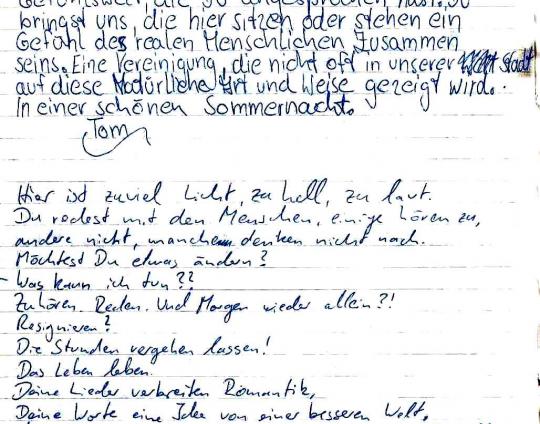 Gefühlswelt, die Du angesprochen hast. Du
bringst uns, die hier sitzen oder stehen ein
Gefühl des realen Menschlichen Zusammen
seins. Eine Vereinigung, die nicht oft in unserer Stadt
auf diese Natürliche Art und Weise gezeigt wird.
In einer schönen Sommernacht.
Tom
Hier ist zuviel Licht, zu hell, zu laut.
Du redest mit den Menschen, einige hören zu,
andere nicht, manche denken nicht nach.
Möchtest Du etwas ändern?
- Was kann ich tun??
Zuhören. Reden. Und Morgen wieder allein?!
Resignieren?
Die Stunden vergehen lassen!
Das Leben leben.
Deine Lieder verbreiten Romantik,
Deine Worte eine Idee von einer besseren Welt.